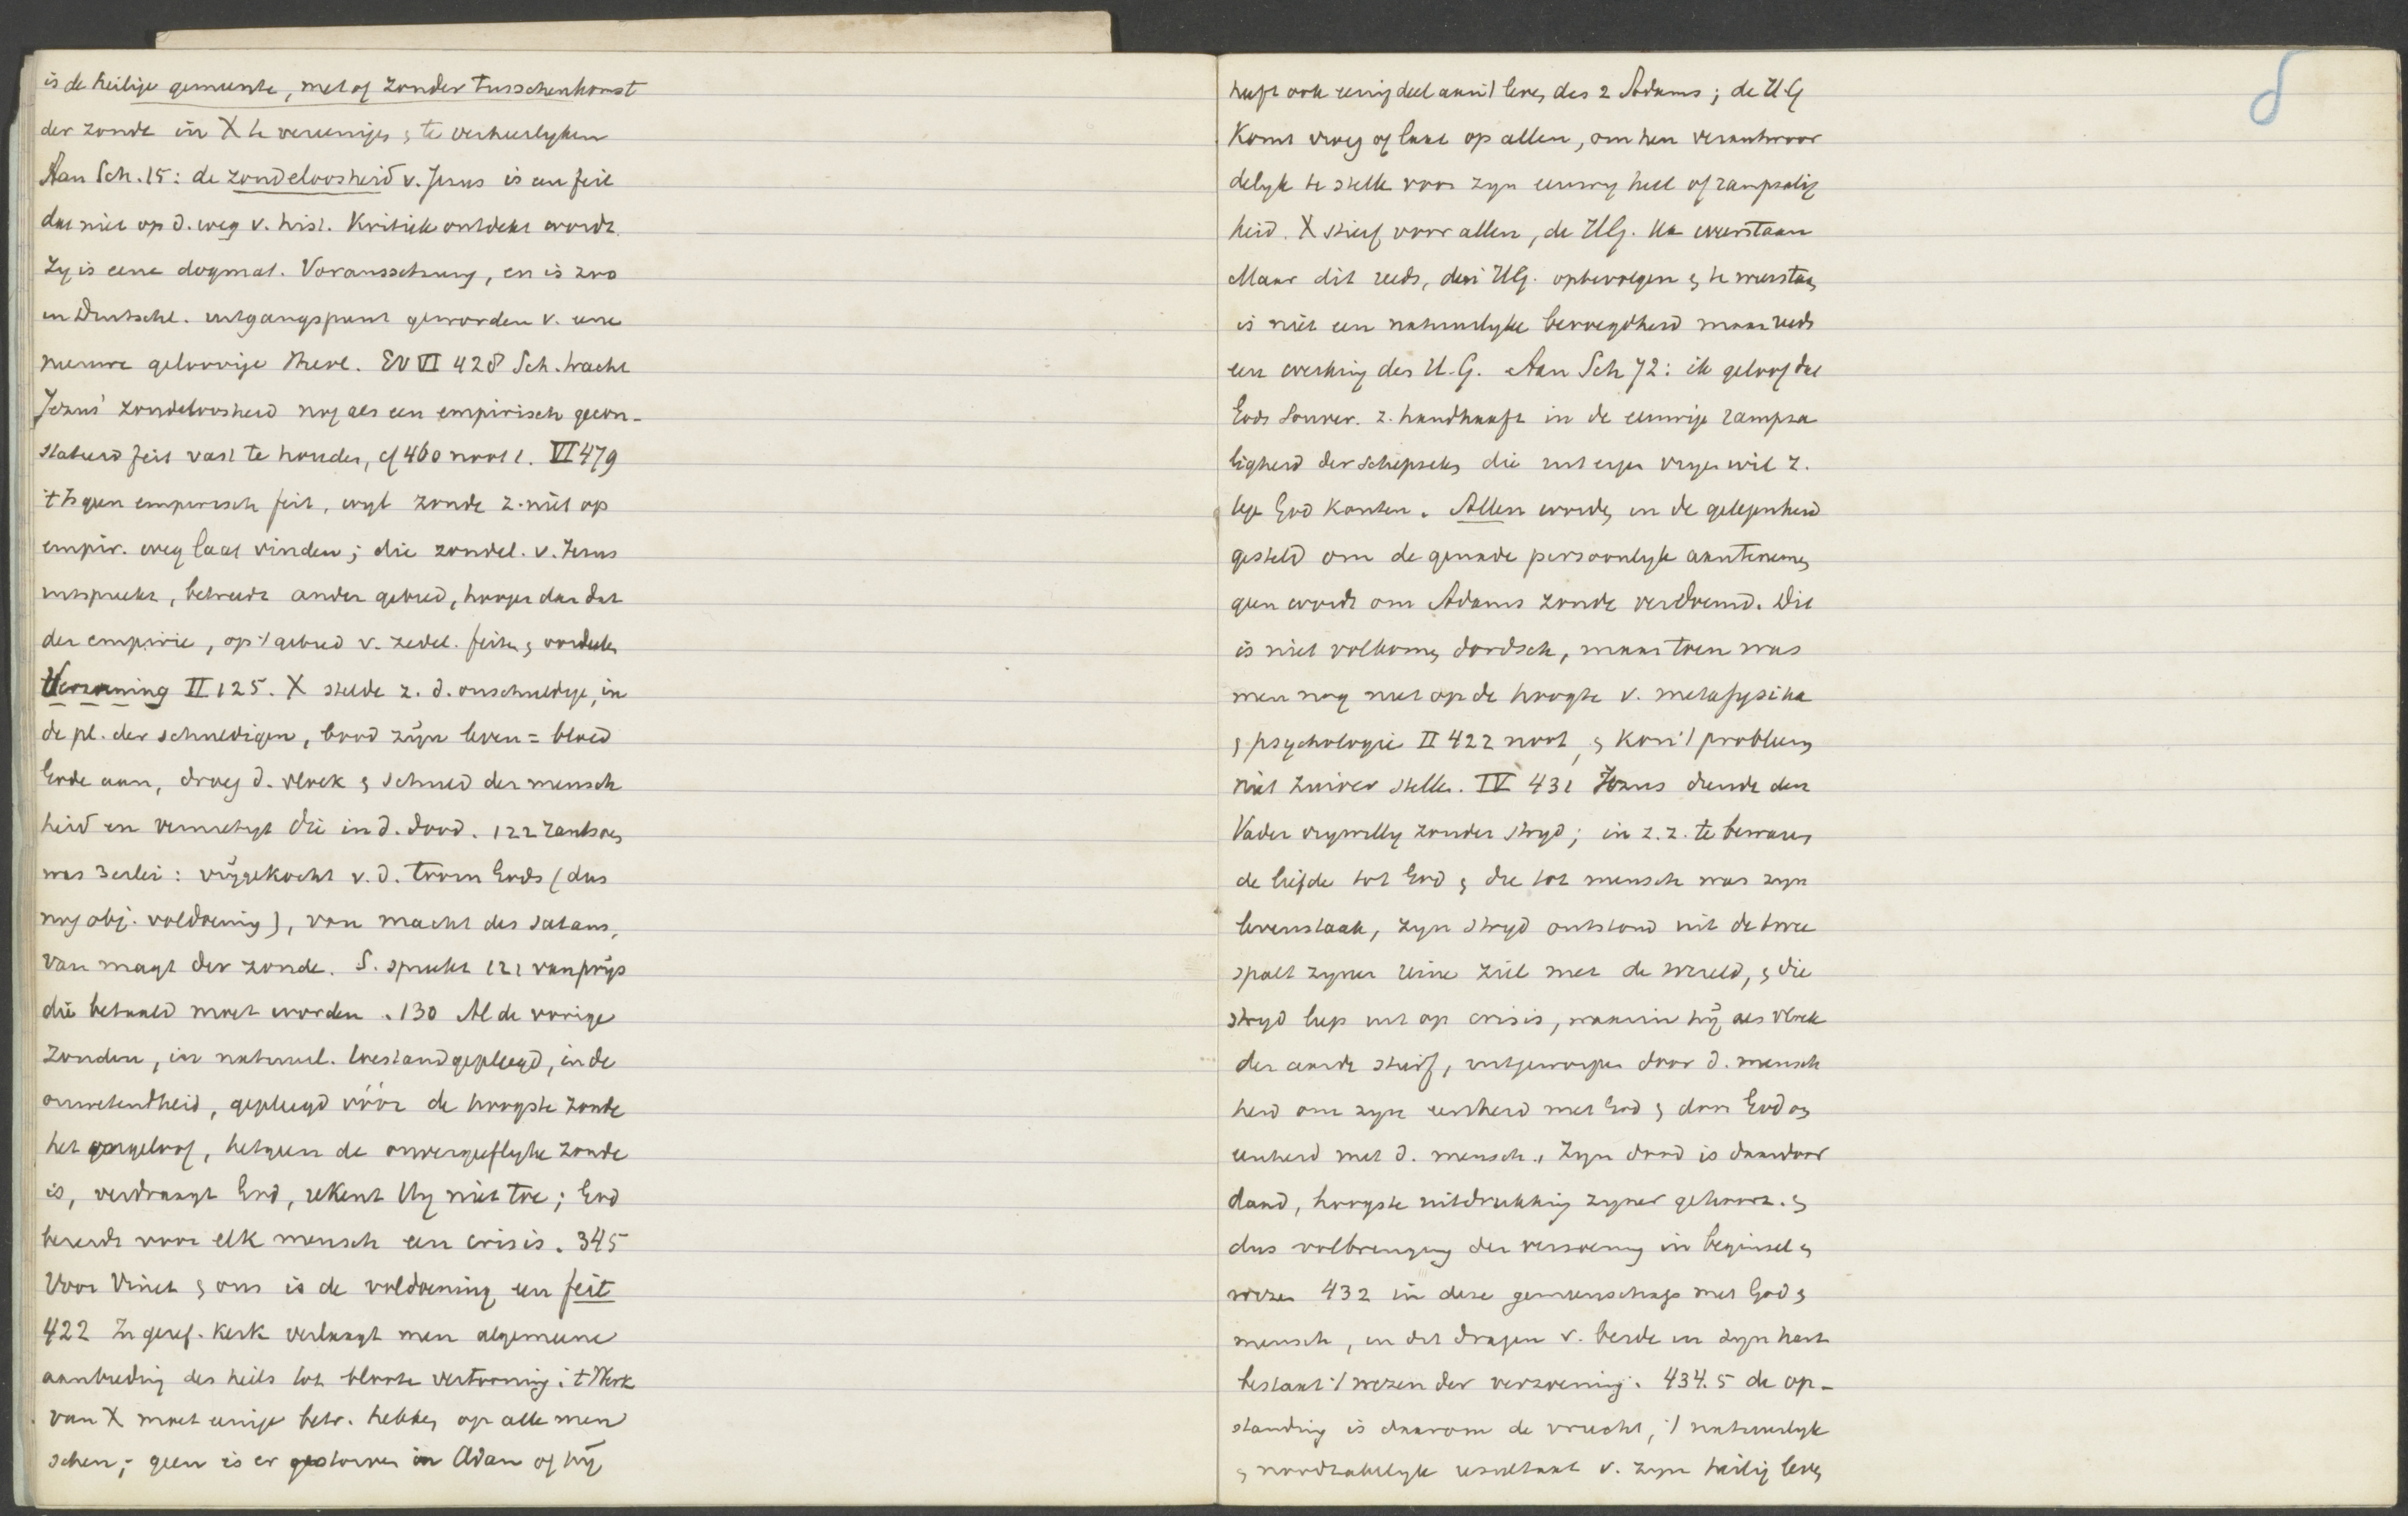 is de heilige gemeente, met of zonder tusschenkomst
der zonde in X te vereenigen & te verheerlyken
Aan Sch. 15: de zondeloosheid v. Jezus is een feit
dat niet op d. weg v. hist. Kritiek ontdekt wordt.
Zy is eene dogmat. Voraussetzung, en is zoo
in Duitschl. uitgangspunt geworden v. eene
nieuwe geloovige theol. EV VI 428 Sch. tracht
Jezus' zondeloosheid nog als een empirisch gecon-
stateerd feit vast te houden, cf 460 noot 1. VI 479
't Is geen empirisch feit, wyl zonde z. niet op
empir. weg laat vinden; die zondel. v. Jezus
uitspreekt, betreedt ander gebied, hooger dan dat
der empirie, op 't gebied v. zedel. feiten & oordeelen
Verzoening II 125. X stelde z. d. onschuldige, in
de pl. der schuldigen, bood zijn leven = bloed
Gode aan, droeg d. vloek & schuld der mensch
heid en vernietigt die in d. dood. 122 rantsoen
was 3erlei: vrijgekocht v. d. toorn Gods (dus
nog obj. voldoening), van macht des satans,
van magt der zonde. S. spreekt 121 van prijs
die betaald moet worden. 130 Al de vorige
zonden, in natuurl. toestand gepleegd, in de
onwetendheid, gepleegd vóór de hoogste zonde
het ongeloof, hetgeen de onvergeeflyke zonde
is, verdraagt God, rekent Hy niet toe; God
bereidt voor elk mensch een crisis. 345
Voor Vinet & ons is de voldoening een feit
422 In geref. Kerk verlaagt men algemeene
aanbieding des heils tot bloote vertooning: 't Werk
van X moet eenige betr. hebben op alle men
schen; geen is er gestorven in Adam of hij
heeft ook eenig deel aan 't leven des 2 Adams; de H.G
Komt vroeg of laat op allen, om hen verantwoor
delyk te stellen voor zyn eeuwig heil of rampzalig
heid. X stierf voor allen, de HG. te weerstaan
Maar dit reeds, den HG. op te volgen & te weerstaan
is niet een natuurlyke bevoegdheid maar reeds
een werking des H.G. Aan Sch 72: ik geloof dat
Gods Souver. z. handhaaft in de eeuwige rampza
ligheid der schepselen die uit eigen vryen wil z.
tegen God kanten. Allen worden in de gelegenheid
gesteld om de genade persoonlyk aantenemen
geen wordt om Adams zonde verdoemd. Dit
is niet volkomen dordsch, maar toen was
men nog niet op de hoogte v. metafysika
& psychologie II 422 noot, & kon 't probleem
niet zuiver stellen. IV 431 Jezus diende den
Vader vrywillig zonder stryd; in z. z. te bewaren
de liefde tot God & die tot mensch was zyn
levenstaak, zyn stryd ontstond uit de twee
spalt zyner reine ziel met de wereld, & die
stryd liep uit op crisis, waarin hij als vloek
der aarde stierf, uitgeworpen door d. mensch
heid om zyn eenheid met God & door God om
eenheid met d. mensch., Zyn dood is daardoor
daad, hoogste uitdrukking zyner gehoorz. &
dus volbrenging der verzoening in beginsel &
wezen 432 in deze gemeenschap met God &
mensch, in dit dragen v. beide in zyn hart
bestaat 't wezen der verzoening. 434.5 de op-
standing is daarom de vrucht, 't natuurlyk
& noodzakelyk resultaat v. zyn heilig leven